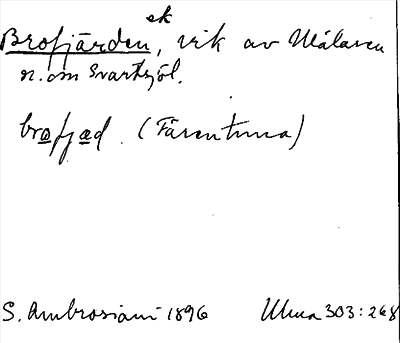 ek
Brofjärden, vik av Mälaren
n. om Svartsjöl.
brafjad. (Färentuna)
S. Ambrosiani 1896 Ulma 303:268